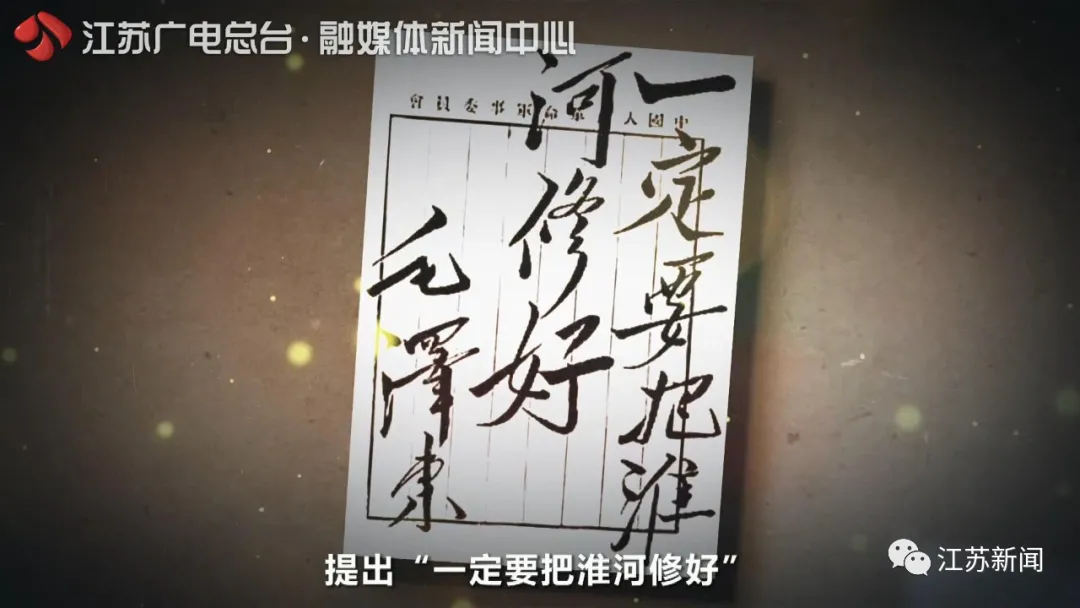 江苏广电总台·融媒体新闻中心
中國人
軍事委員會
一定要把淮
河修好
毛澤東
提出“一定要把淮河修好”
江苏新闻